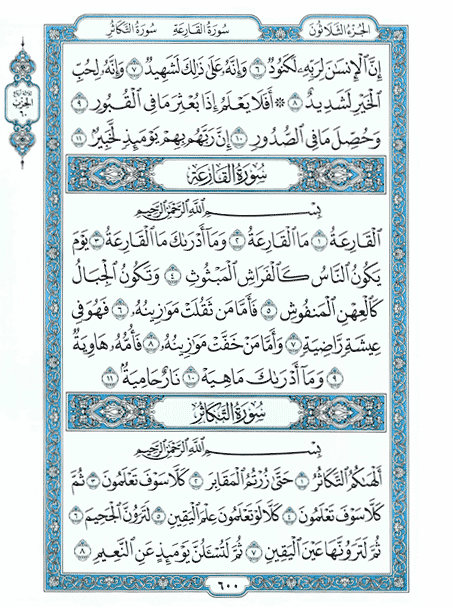 الجزء الثلاثون
سورة القارعة سورة التكاثر
إِنَّ الْإِنسَٰنَ لِرَبِّهِۦ لَكَنُودٌ ٦ وَإِنَّهُۥ عَلَىٰ ذَٰلِكَ لَشَهِيدٌ ٧ وَإِنَّهُۥ لِحُبِّ
الْخَيْرِ لَشَدِيدٌ ٨ ۞ أَفَلَا يَعْلَمُ إِذَا بُعْثِرَ مَا فِي الْقُبُورِ ٩
وَحُصِّلَ مَا فِي الصُّدُورِ ١٠ إِنَّ رَبَّهُم بِهِمْ يَوْمَئِذٍ لَّخَبِيرٌ ١١
الحزب
٦٠
سُورَةُ القَارِعَةِ
بِسْمِ اللَّهِ الرَّحْمَٰنِ الرَّحِيمِ
الْقَارِعَةُ ١ مَا الْقَارِعَةُ ٢ وَمَا أَدْرَىٰكَ مَا الْقَارِعَةُ ٣ يَوْمَ
يَكُونُ النَّاسُ كَالْفَرَاشِ الْمَبْثُوثِ ٤ وَتَكُونُ الْجِبَالُ
كَالْعِهْنِ الْمَنفُوشِ ٥ فَأَمَّا مَن ثَقُلَتْ مَوَٰزِينُهُۥ ٦ فَهُوَ فِي
عِيشَةٍ رَّاضِيَةٍ ٧ وَأَمَّا مَنْ خَفَّتْ مَوَٰزِينُهُۥ ٨ فَأُمُّهُۥ هَاوِيَةٌ
٩ وَمَا أَدْرَىٰكَ مَا هِيَهْ ١٠ نَارٌ حَامِيَةٌ ١١
سُورَةُ التَّكَاثُرِ
بِسْمِ اللَّهِ الرَّحْمَٰنِ الرَّحِيمِ
أَلْهَىٰكُمُ التَّكَاثُرُ ١ حَتَّىٰ زُرْتُمُ الْمَقَابِرَ ٢ كَلَّا سَوْفَ تَعْلَمُونَ ٣ ثُمَّ
كَلَّا سَوْفَ تَعْلَمُونَ ٤ كَلَّا لَوْ تَعْلَمُونَ عِلْمَ الْيَقِينِ ٥ لَتَرَوُنَّ الْجَحِيمَ ٦
ثُمَّ لَتَرَوُنَّهَا عَيْنَ الْيَقِينِ ٧ ثُمَّ لَتُسْـَٔلُنَّ يَوْمَئِذٍ عَنِ النَّعِيمِ ٨
٦٠٠